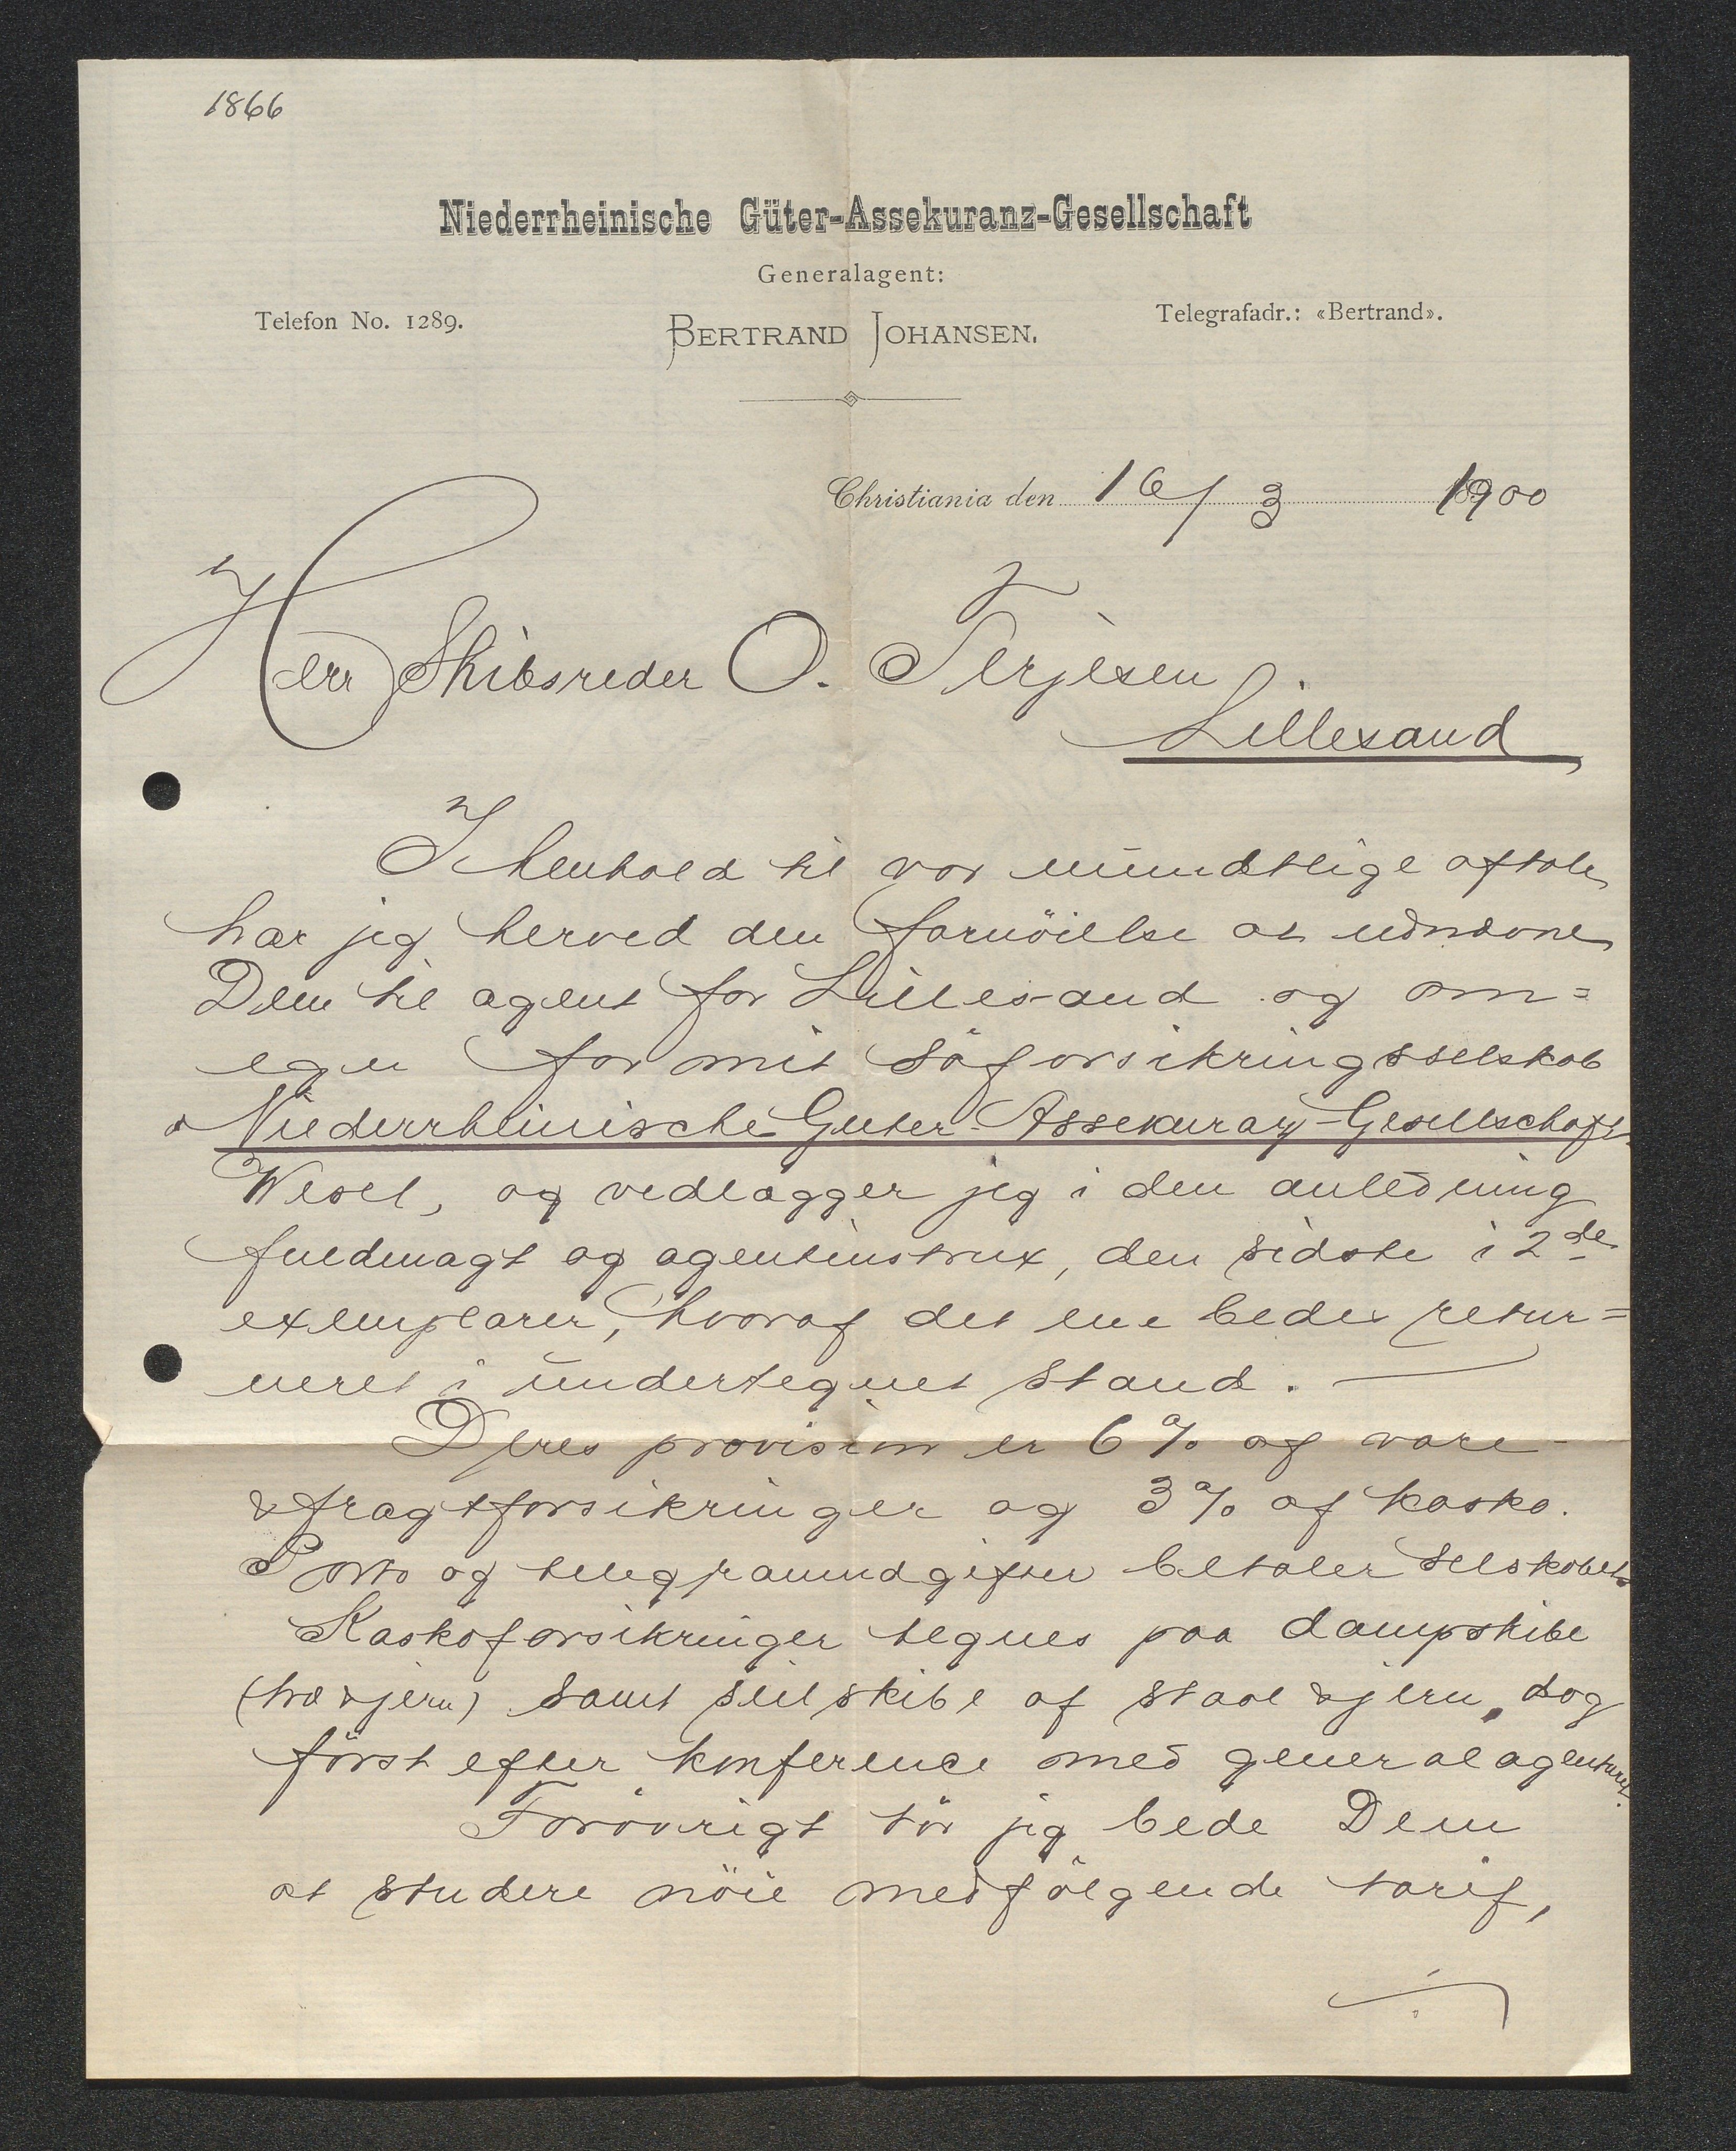 1866
Niederrheinische Güter-Assekuranz-Gesellschaft
Generalagent:
Telefon No. 1289.
BERTRAND JOHANSEN.
Telegrafadr.: «Bertrand».
Christiania den 16/3 1900
Herr Skibsreder O. Terjesen.
Lillesand
I henhold til vor mundtlige aftale
har jeg herved den fornöielse at udnævne
Dem til agent for Lillesand og om=
egn for mit söforsikringsselskab
Niederrheinische Güter-Assekuranz-Gesellschaft
Wesel, og vedlægger jeg i den anledning
fuldmagt og agentinstrux, den sidste i 2de
exemplarer, hvoraf det ene bedes retur=
neret i undertegnet stand. —
Deres provision er 6% af vare-
& fragtforsikringer og 3% af kasko.
Porto og telegramudgifter betaler selskabet.
Kaskoforsikringer tegnes paa dampskibe
(træ & jern) samt seilskibe af staal & jern, dog
först efter konference med generalagenturet.
Foröwrigt tör jeg bede Dem
at studere nöie medfölgende tarif,